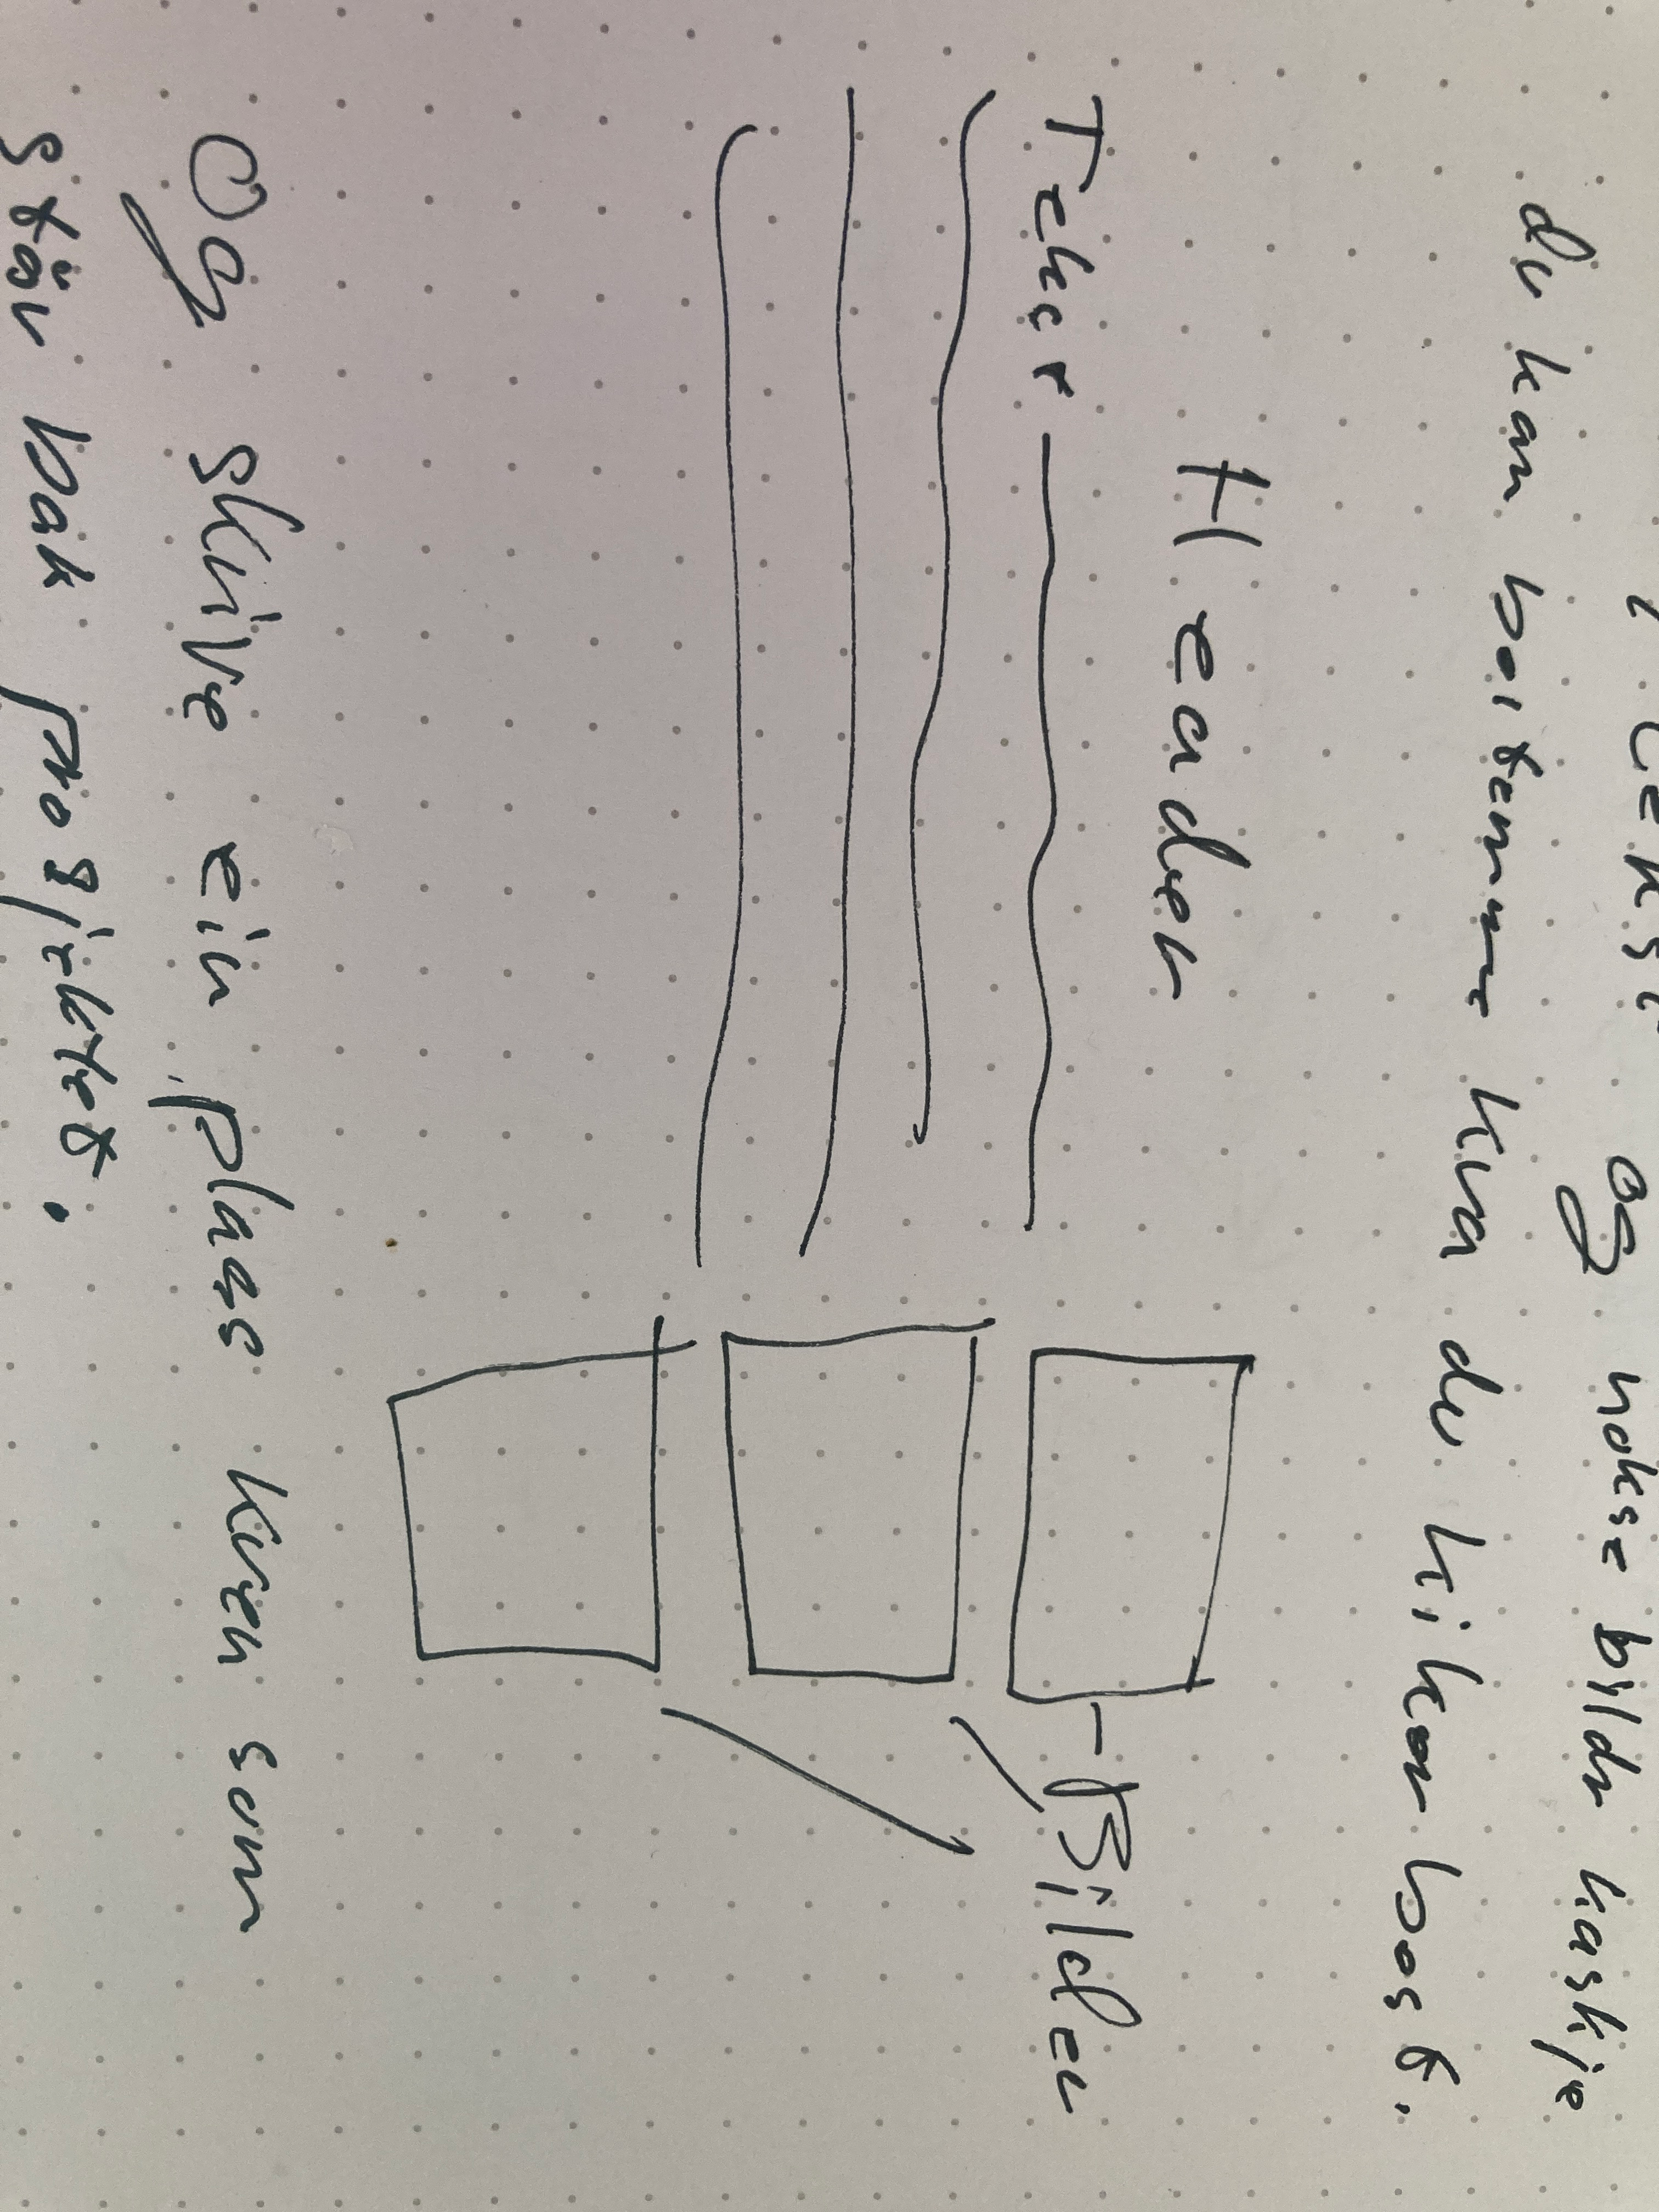 og nokse bilder kaskje
du kan bestemme kva du likar best.
Header
Tekst
Bilder
Og skrive ein plass kven som
står bak prosjektet.